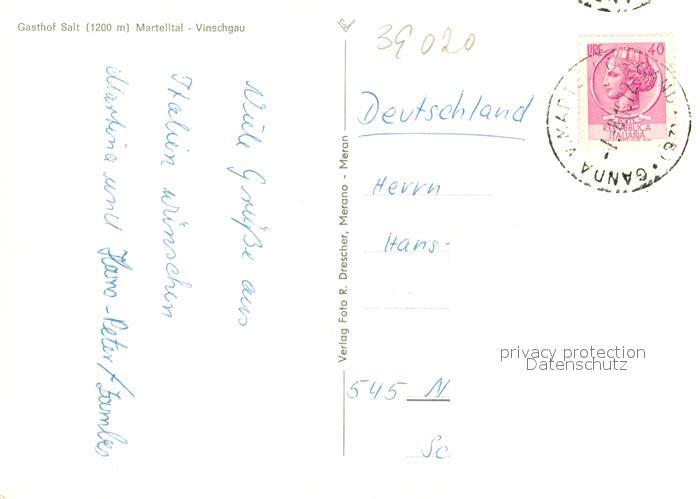 Gasthof Salt (1200 m) Martelltal - Vinschgau
Viele Grüße aus
Italien wünschen
Martina und Hans-Peter
Verlag Foto R. Drescher, Merano - Meran
39 020
Deutschland
Herrn
Hans-
545 N
Sc
LIRE 40
REPUBBLICA
ITALIANA
GANDA V. MARTE
privacy protection
Datenschutz